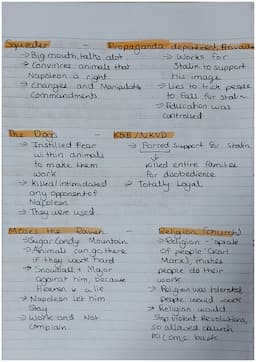 Squealer - Propaganda department, Pravda
→ Big mouth, talks alot
→ Convinces animals that Napoleon is right.
→ changes and Manipulate Commandments.
→ Works for Stalin to support his image
→ Lies to trick people to fall for Stalin
→ Education was controlled
The Dogs - KGB/NKVD
→ Instilled Fear within animals to make them work
→ Killed/intimidated any opponent of Napoleon
→ They were used
→ Forced support for Stalin
↓
Killed entire families for disobedience
→ Totally Loyal
Moses the Raven - Religion (church)
→ Sugarcandy Mountain
→ Animals can go there if they work hard
→ Snowball + Major against him, because Heaven is a lie
→ Napoleon let him stay
→ Work and Not complain.
→ Religion - 'opiate of people' (Karl Marx), makes people do their work
→ Religion was tolerated, people would work
→ Religion would stop violent Revolutions, so allowed church to come back